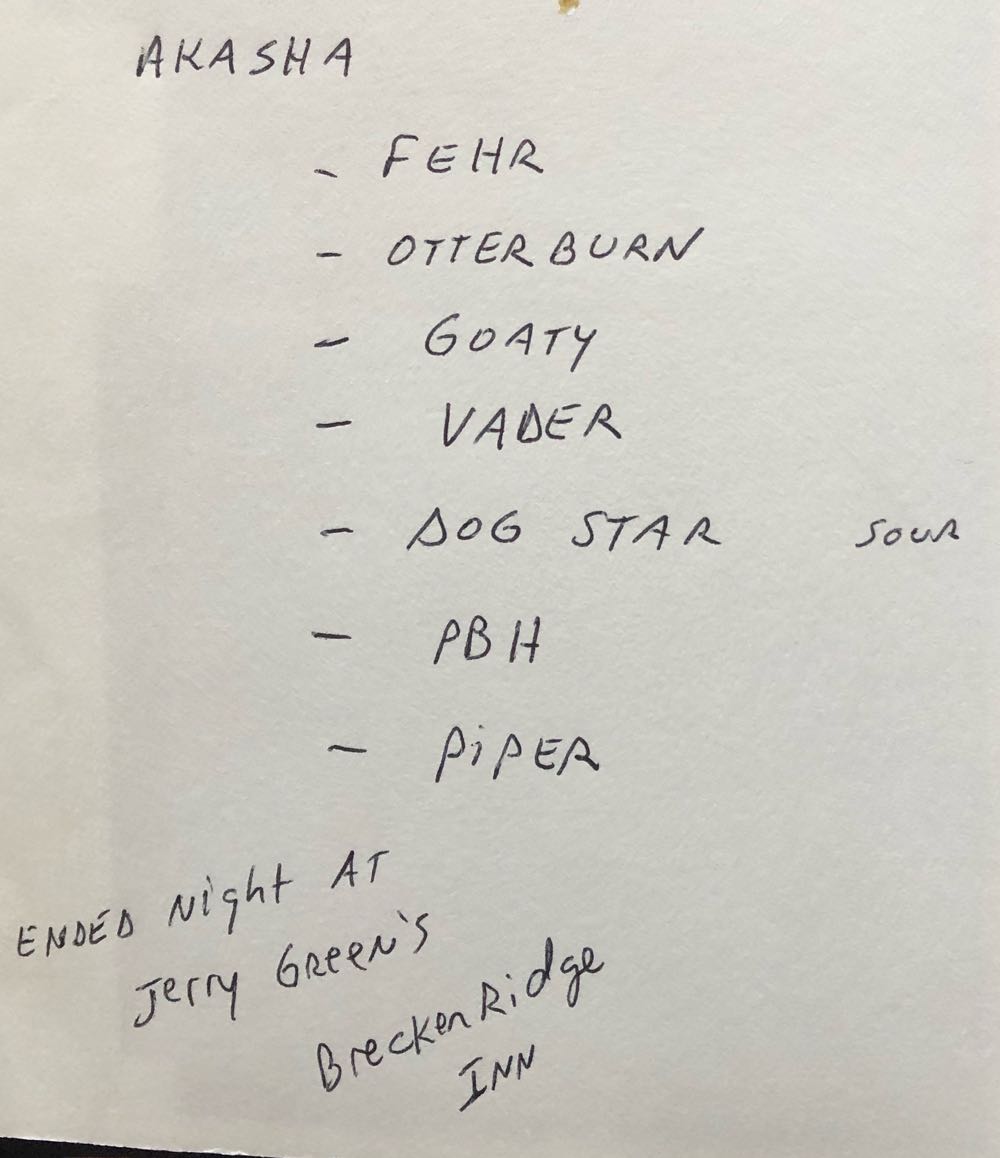 AKASHA
- FEHR
- OTTERBURN
- GOATY
- VADER
- DOG STAR SOUR
- PBH
- PiPER
ENDED Night AT
Jerry GReeN's
BreckenRidge
INN